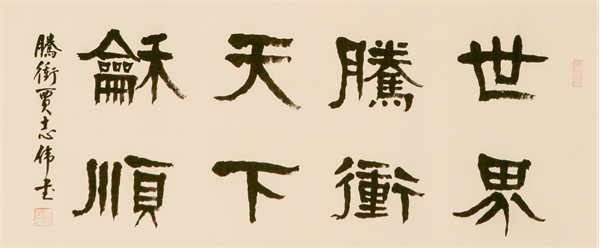 世界
騰衝
天下
龢順
騰衝賈志伟书